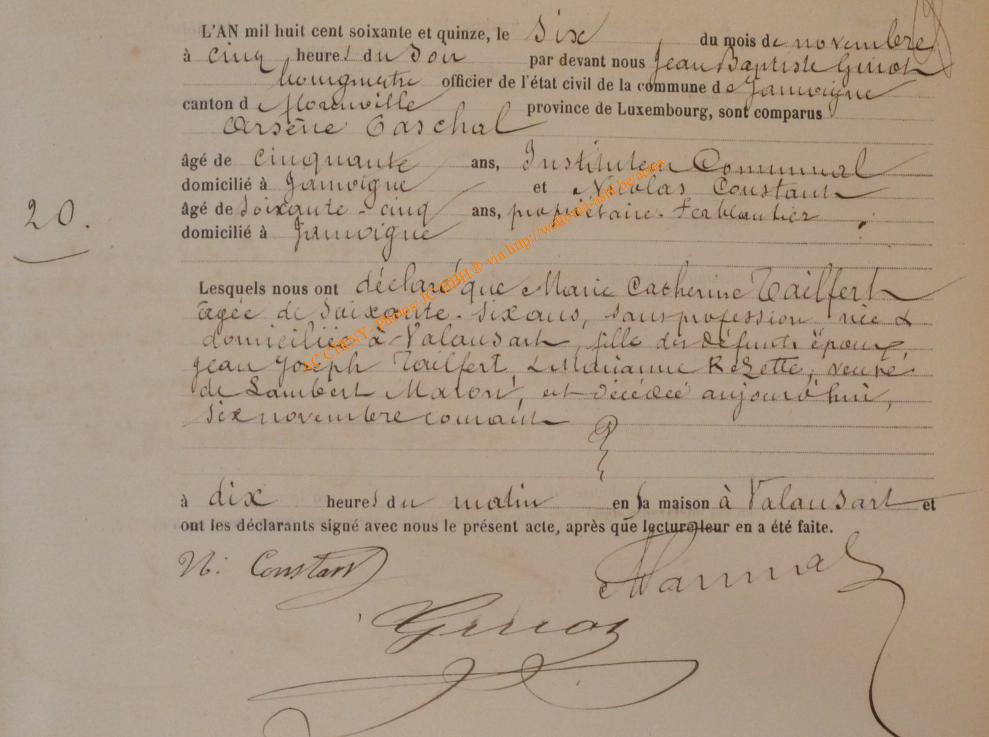 L'AN mil huit cent soixante et quinze, le six du mois de novembre
à cinq heures du Soir par devant nous Jean Baptiste
bourgmestre officier de l'état civil de la commune de Jamoigne
canton de Florenville province de Luxembourg, sont comparus
Arsène
âgé de cinquante ans, Instituteur Communal
domicilié à Jamoigne et Nicolas Constant
âgé de soixante-cinq ans, propriétaire-Ferblantier
domicilié à Jamoigne
20.
Lesquels nous ont déclaré que Marie Catherine Tailfert
agée de Soixante-six ans, sans profession née &
domiciliée à Valansart, fille des défunts époux,
Jean Joseph Tailfert, & Marianne Rezette, veuve
de Lambert et décédée aujourd'hui,
six novembre courant
à dix heures du matin en sa maison à Valansart et
ont les déclarants signé avec nous le présent acte, après que lecture leur en a été faite.
N: Constant